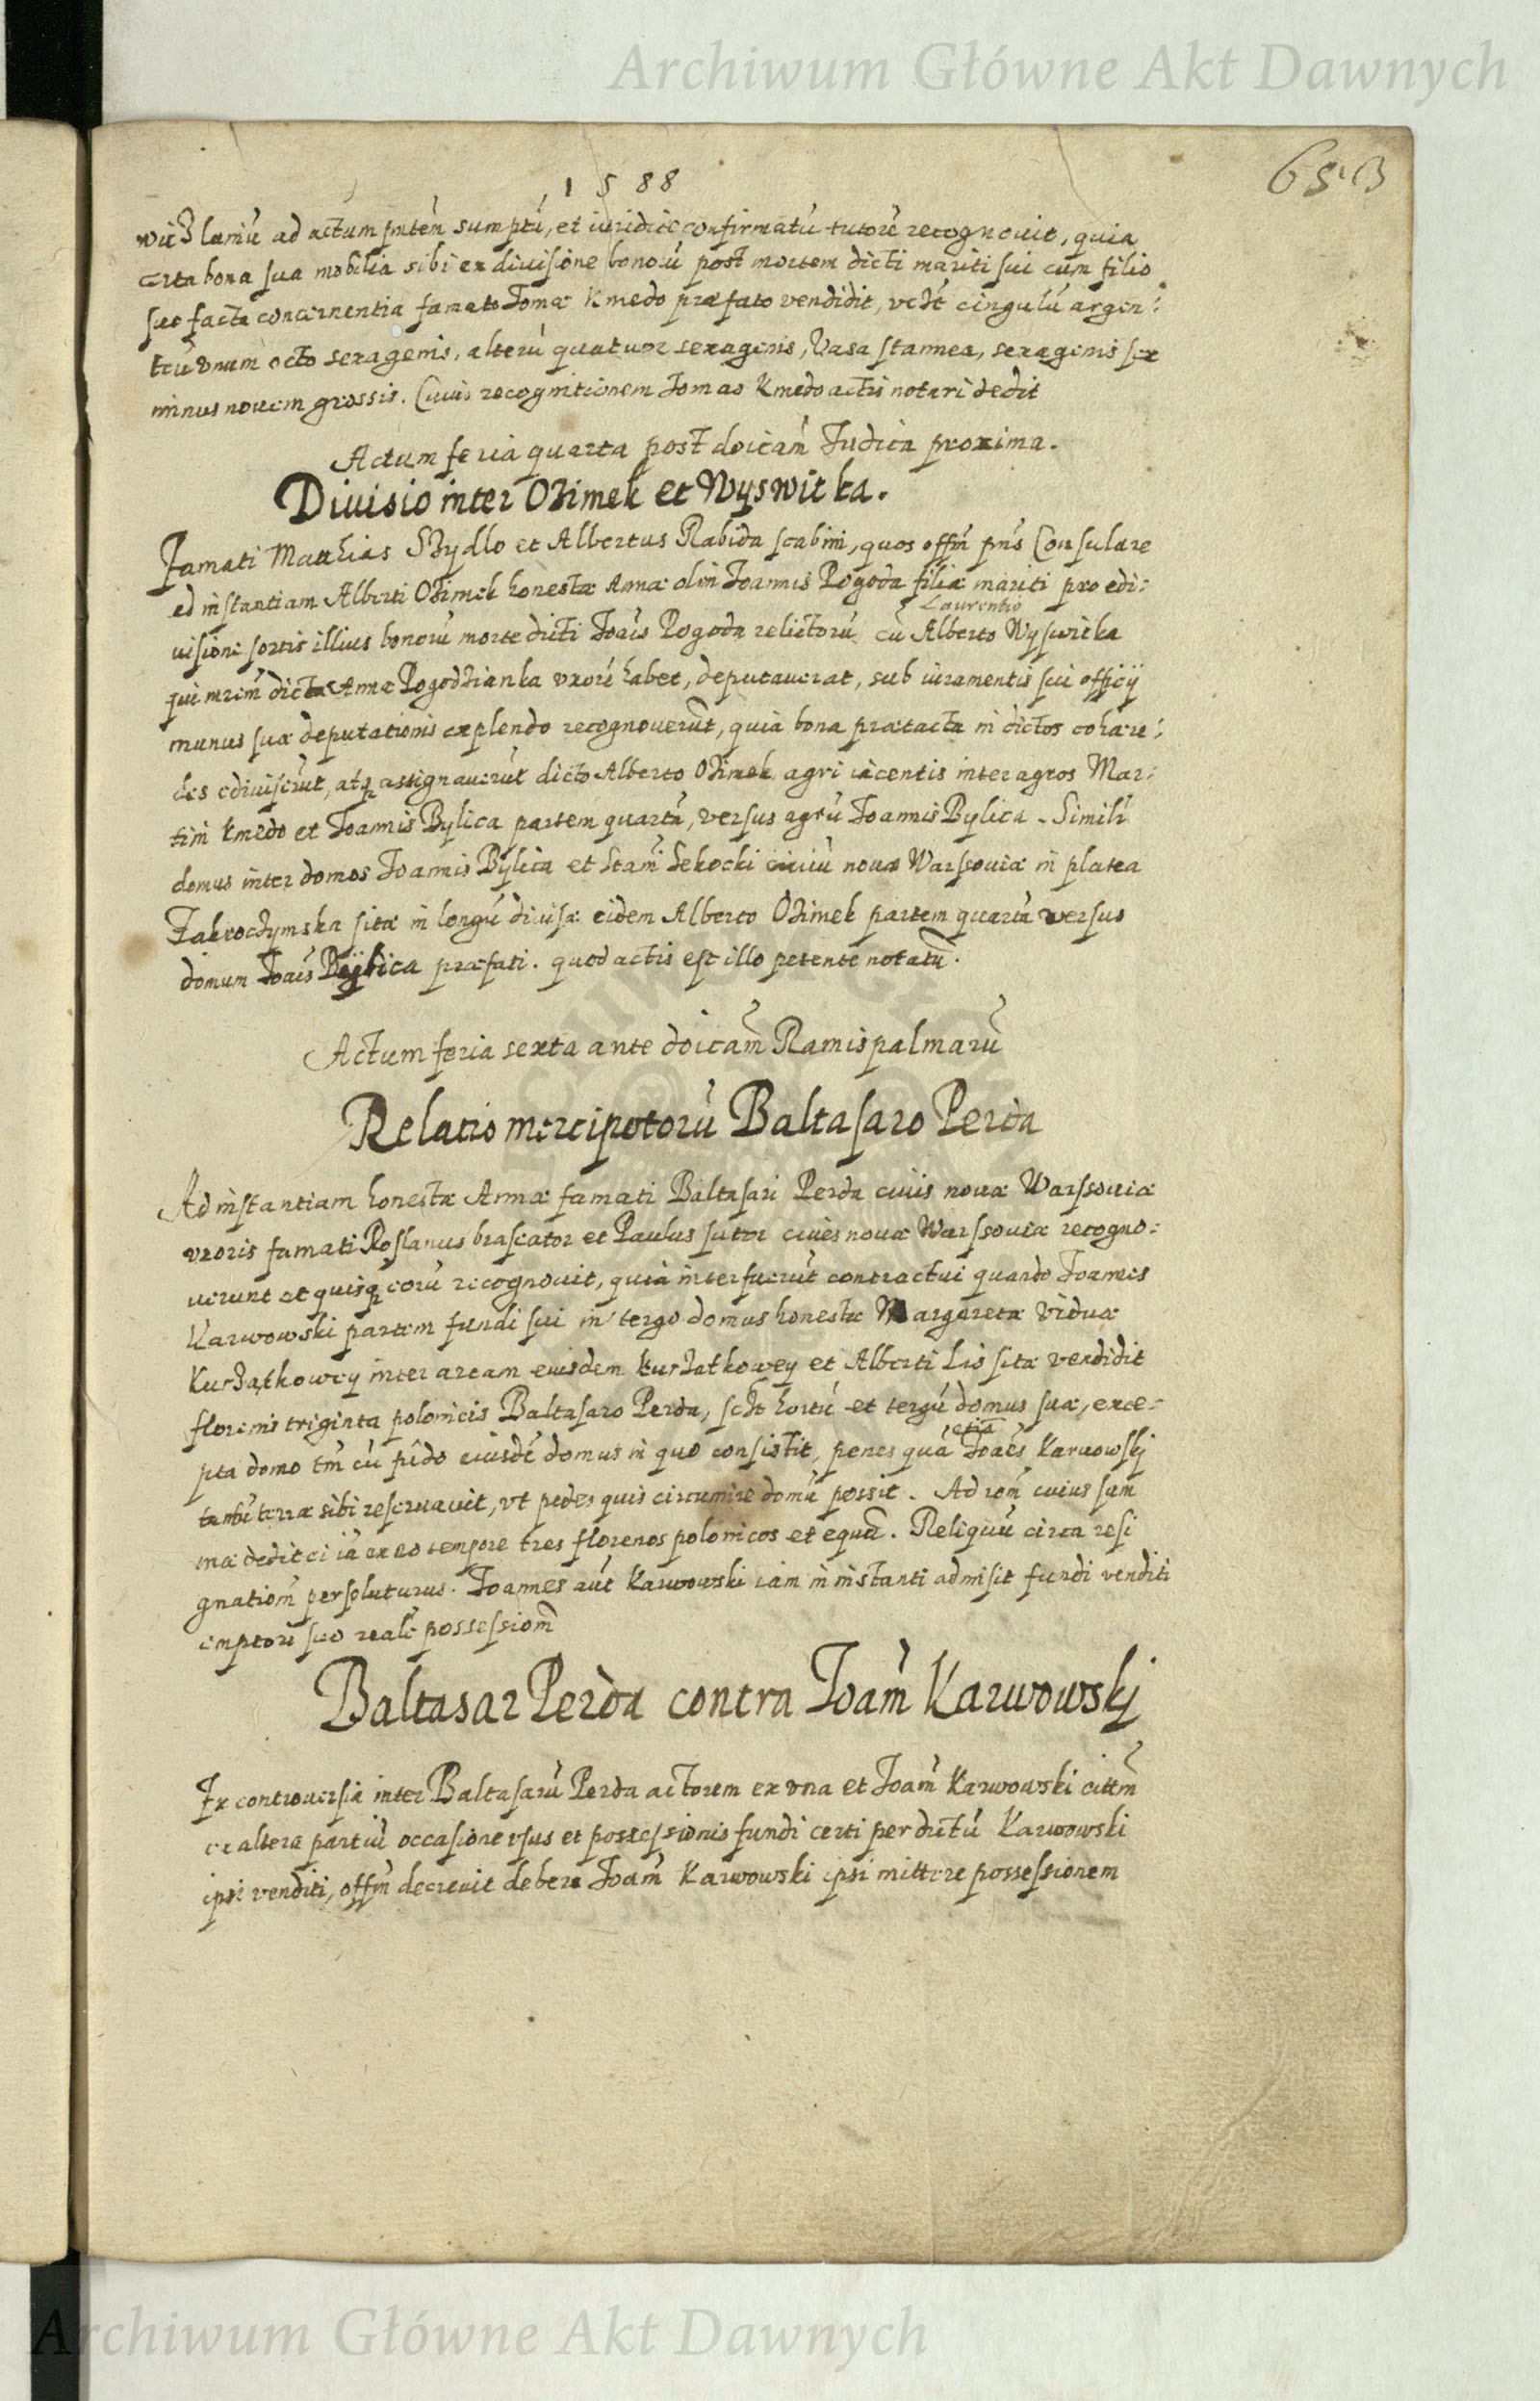 Archiwum Główne Akt Dawnych
1588
ad actum pntem sumptũ, et iuridice confirmatũ tutorẽ recognovit, quia
certa bona sua mobilia sibi ex divisione bonorũ post mortem dicti mariti sui cum filio
suo facta concernentia famato Tomæ Kmedo præfato vendidit, vdt cingulũ argen:
teũ vnum octo sexagenis, alterũ quatuor sexagenis, Vasa stannea, sexagenis sex
minus novem grossis. Cuius recognitionem Tomas Kmedo actis notari dedit
Actum feria quarta post doicam̃ Iudica proxima.
Divisio inter Ozimek et Wyswitka.
Famati Matthias Szydlo et Albertus Rabida scabini, quos offm̃ pñs Consulare
ad instantiam Alberti Ozimek honestæ Annæ olim Ioannis Pogoda filiæ mariti pro edi:
Laurentio
uisione sortis illius bonorũ morte dicti Ioãis Pogoda relictorũ cũ Alberto Wyswitka
qui mrem̃ dictæ Annæ Pogodzianka vxorẽ habet, deputaverat, sub iuramentis sui officij
munus suæ deputationis explendo recognoverũt, quia bona prætacta in dictos cohære:
des ediviserũt, atq assignaverũt dicto Alberto Ozimek agri iacentis inter agros Mar:
tini Kmedo et Ioannis Bylica partem quartã, versus agrũ Ioannis Bylica. Simili
domus inter domos Ioannis Bylica et Stani Sekocki civiũ novæ Warssoviæ in platea
Zakroczymska sitæ in longũ divisæ eidem Alberto Ozimek partem quartã versus
domum Ioãis Bylica præfati. quod actis est illo petente notatũ.
Actum feria sexta ante doicam̃ Ramispalmarũ
Relatio mercipotorũ Baltasaro Perda
Ad instantiam honestæ Annæ famati Baltasari Perda civis novæ Warssoviæ
vxoris famati Roslanus braseator et Paulus sutor cives novæ Warssoviæ recogno:
verunt et quisq eorũ recognovit, quia interfuerũt contractui quando Ioannes
Karwowski partem fundi sui in tergo domus honestæ Margaretæ viduæ
Kurzątkowey inter aream eiusdem Kurzątkowey et Alberti Lis sitæ vendidit
florenis triginta polonicis Baltasaro Perda, sczt hortũ et tergũ domus suæ, exce:
etiã
pta domo tm̃ cũ fũdo eiusdẽ domus in quo consistit, penes quã Ioães Karwowskj
tantũ terræ sibi reservavit, vt pedes quis circumire domũ possit. Ad rem̃ cuius sum
mæ dedit ei iã ex eo tempore tres florenos polonicos et equũ. Reliquũ circa resi
gnationẽ persoluturus. Ioannes aũt Karwowski iam in instanti admisit fundi venditi
emptori suo realẽ possessionẽ
Baltasar Perda contra Ioam̃ Karwowskj
In controversia inter Baltasarũ Perda actorem ex vna et Ioam̃ Karwowski cittm̃
ex altera partiũ occasione vsus et possessionis fundi certi per dictũ Karwowski
ipsi venditi, offm̃ decrevit debere Ioam̃ Karwowski ipsi mittere possessionem
Archiwum Główne Akt Dawnych